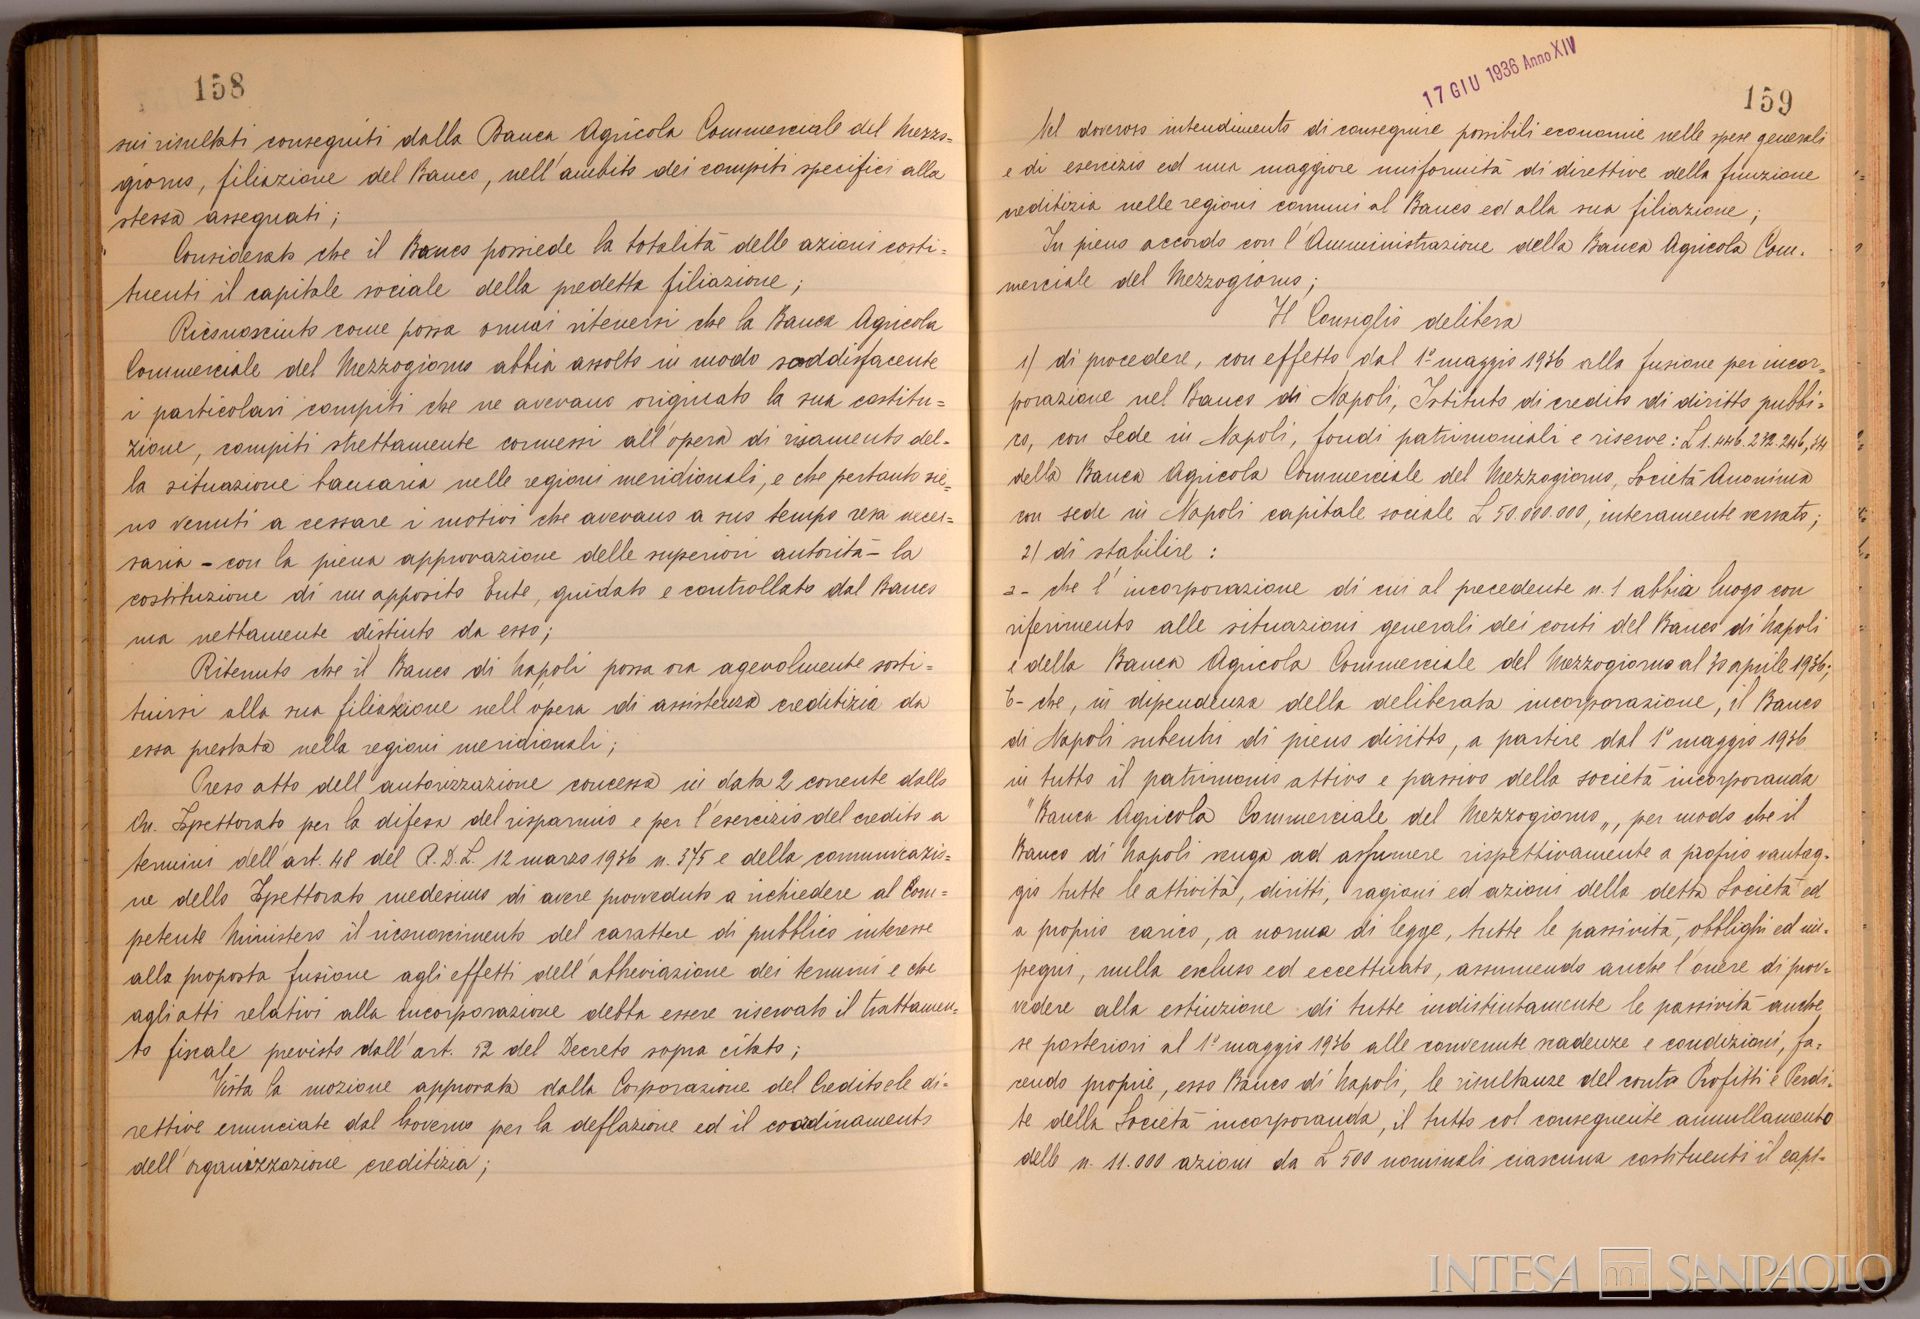 158
sui risultati conseguiti dalla Banca Agricola Commerciale del Mezzo=
giorno, filiazione del Banco, nell'ambito dei compiti specifici alla
stessa assegnati;
Considerato che il Banco possiede la totalità delle azioni costi=
tuenti il capitale sociale della predetta filiazione;
Riconosciuto come possa ormai ritenersi che la Banca Agricola
Commerciale del Mezzogiorno abbia assolto in modo soddisfacente
i particolari compiti che ne avevano originato la sua costitu=
zione, compiti strettamente connessi all'opera di risanamento del=
la situazione bancaria nelle regioni meridionali, e che pertanto sie=
no venuti a cessare i motivi che avevano a suo tempo resa neces=
saria - con la piena approvazione delle superiori autorità - la
costituzione di un apposito Ente, guidato e controllato dal Banco
ma nettamente distinto da esso;
Ritenuto che il Banco di Napoli possa ora agevolmente sosti=
tuirsi alla sua filiazione nell'opera di assistenza creditizia da
essa prestata nella regioni meridionali;
Preso atto dell'autorizzazione concessa in data 2 corrente dallo
On. Ispettorato per la difesa del risparmio e per l'esercizio del credito a
termini dell'art. 48 del R.D.L. 12 marzo 1936 n. 375 e della comunicazio=
ne dello Ispettorato medesimo di avere provveduto a richiedere al Com=
petente Ministero il riconoscimento del carattere di pubblico interesse
alla proposta fusione agli effetti dell'abbreviazione dei termini e che
agli atti relativi alla incorporazione debba essere riservato il trattamen=
to fiscale previsto dall'art. 52 del Decreto sopra citato;
Vista la mozione approvata dalla Corporazione del Credito e le di=
rettive enunciate dal Governo per la deflazione ed il coordinamento
dell'organizzazione creditizia;
17 GIU 1936 Anno XIV
159
Nel doveroso intendimento di conseguire possibili economie nelle spese generali
e di esercizio ed una maggiore uniformità di direttive della funzione
creditizia nelle regioni comuni al Banco ed alla sua filiazione;
In pieno accordo con l'Amministrazione della Banca Agricola Com=
merciale del Mezzogiorno;
Il Consiglio delibera
1) di procedere, con effetto dal 1° maggio 1936 alla fusione per incor=
porazione nel Banco di Napoli, Istituto di credito di diritto pubbli=
co, con Sede in Napoli, fondi patrimoniali e riserve: L 1.446.272.246,34
della Banca Agricola Commerciale del Mezzogiorno, Società Anonima
con sede in Napoli capitale sociale L 50.000.000, interamente versato;
2) di stabilire:
a - che l'incorporazione di cui al precedente n. 1 abbia luogo con
riferimento alle situazioni generali dei conti del Banco di Napoli
e della Banca Agricola Commerciale del Mezzogiorno al 30 aprile 1936;
b - che, in dipendenza della deliberata incorporazione, il Banco
di Napoli subentri di pieno diritto, a partire dal 1° maggio 1936
in tutto il patrimonio attivo e passivo della società incorporanda
"Banca Agricola Commerciale del Mezzogiorno", per modo che il
Banco di Napoli venga ad assumere rispettivamente a proprio vantag=
gio tutte le attività, diritti, ragioni ed azioni della detta Società ed
a proprio carico, a norma di legge, tutte le passività, obblighi ed im=
pegni, nulla escluso ed eccettuato, assumendo anche l'onere di prov=
vedere alla estinzione di tutte indistintamente le passività anche
se posteriori al 1° maggio 1936 alle convenute scadenze e condizioni, fa=
cendo proprie, esso Banco di Napoli, le risultanze del conto Profitti e Perdi=
te della Società incorporanda, il tutto col conseguente annullamento
delle n. 11.000 azioni da L 500 nominali ciascuna costituenti il capi=
INTESA SANPAOLO